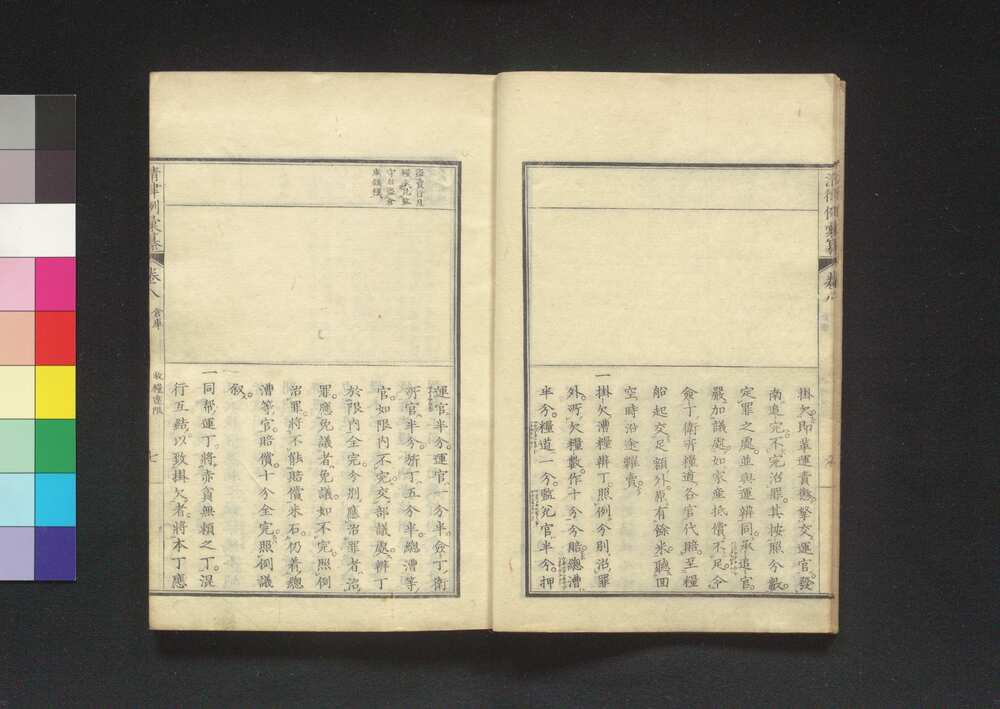 掛欠。即革運責懲。拏交運官。發
南追完。不完治罪。其按照分數
定罪之處。並與運辨同。承追官。
嚴加議處。如家產抵償不足。令
僉丁衛所糧道各官代賠。至糧
船起交足額外。原有餘米。聽回
空時沿途糶賣。
一掛欠漕糧辨丁照例分別治罪
外。所欠糧數。作十分分賠。總漕
半分。糧道一分。監兌官半分。押
運官半分。運官一分半。僉丁衛
所官半分。所丁五分半。總漕等
官。如限內不完。交部議處。辨丁
於限內全完。分別應治罪者。治
罪。應免議者。免議。如不完。照例
治罪。將不能賠償米石。仍着總
漕等官。賠償。十分全完。照例議
敘。
一同幫運丁。將赤貧無賴之丁。混
行互結。以致掛欠者。將本丁應
清律例彙纂
卷八
倉庫
收糧違限
七